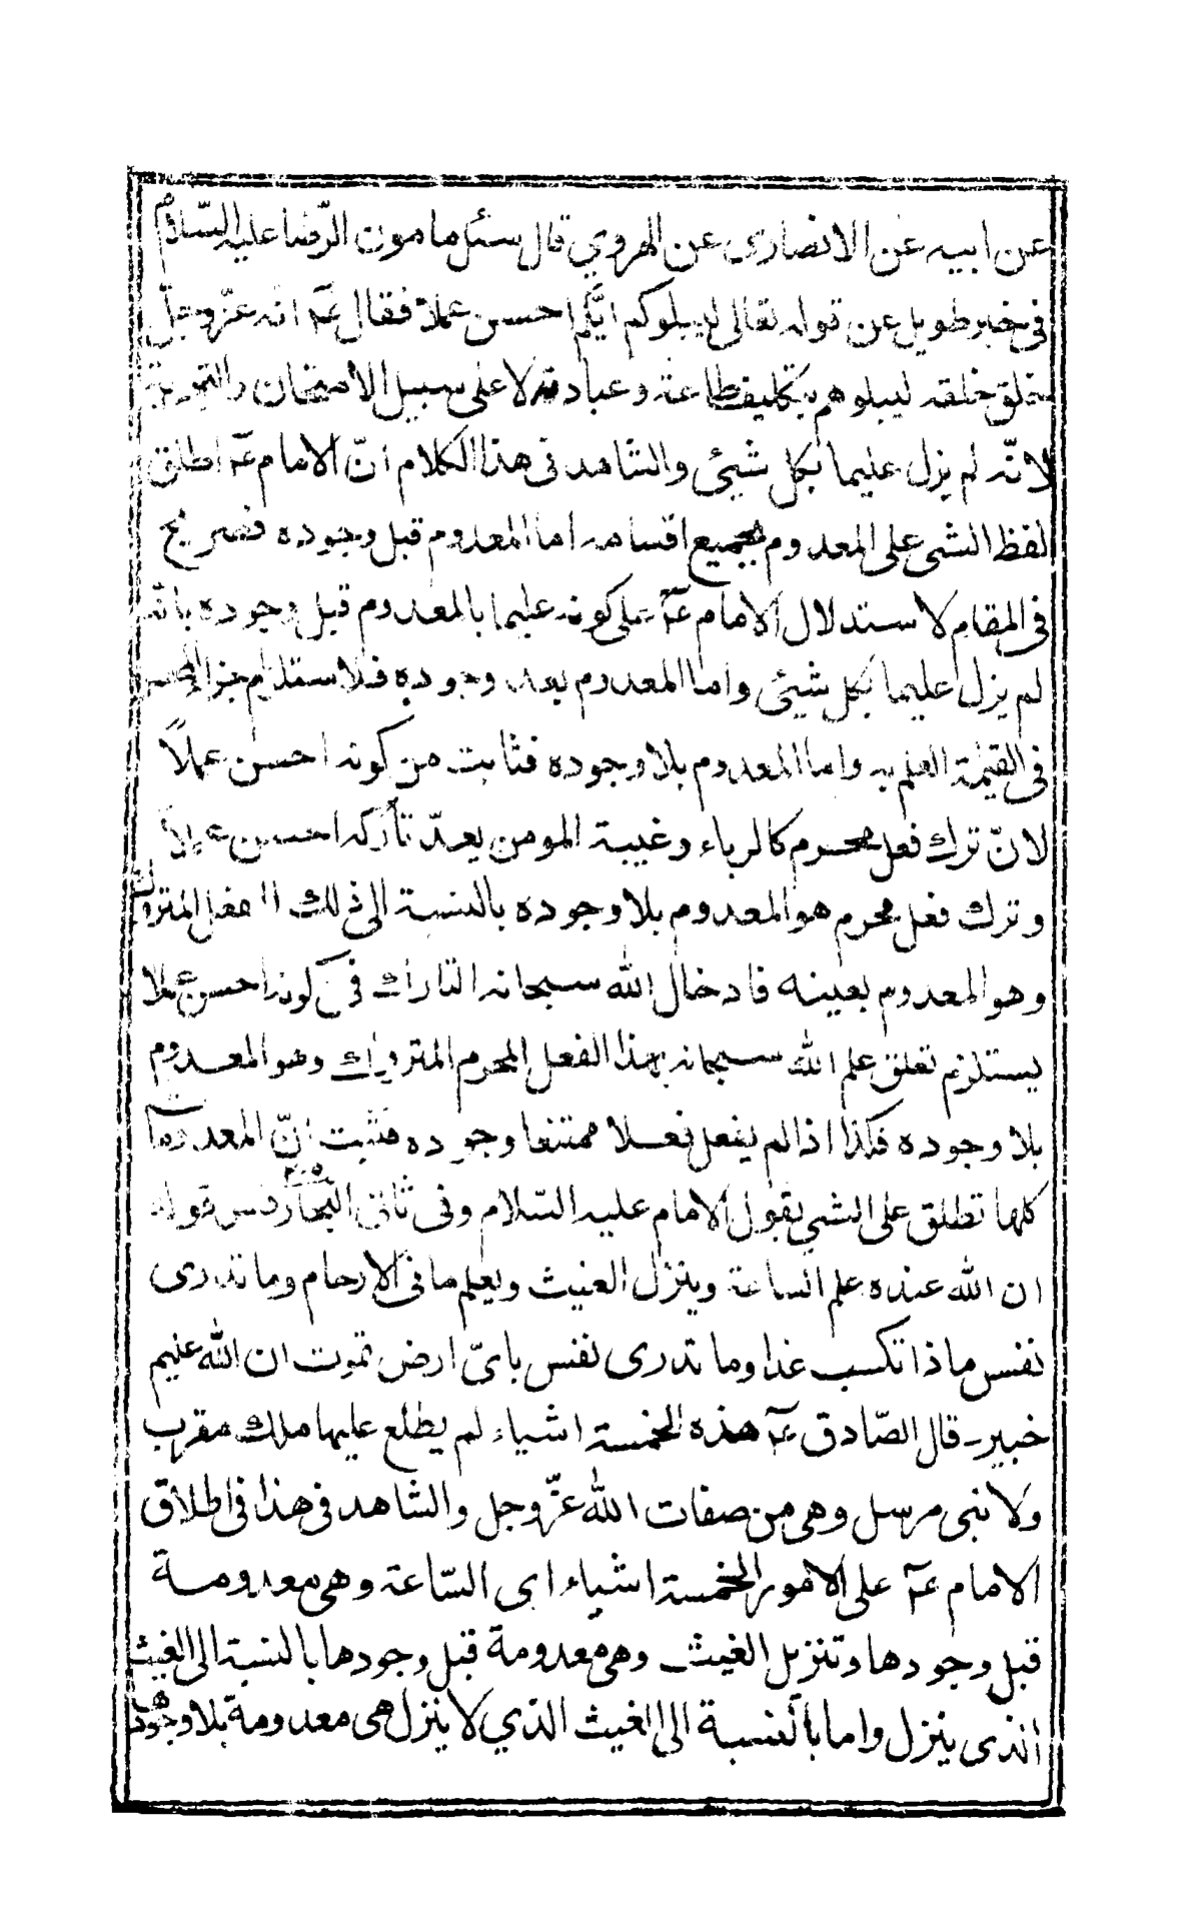 عن ابيه عن الانصارى عن الهروي قال سئل مامون الرّضا عليه السّلام
فى خبر طويل عن قوله تعالى ليبلوكم ايّكم احسن عملا فقال عم انه عزّ وجلّ
خلق خلقه ليبلوهم بتكليف طاعته وعبادته لا على سبيل الامتحان والتجربة
لانّه لم يزل عليما بكل شيئ والشاهد فى هذا الكلام انّ الامام عم اطلق
لفظ الشى على المعدوم بجميع اقسامه اما المعدوم قبل وجوده فصريح
فى المقام لاستدلال الامام عم على كونه عليما بالمعدوم قبل وجوده بانّه
لم يزل عليما بكل شيئ واما المعدوم بعد وجوده فلاستلزام
فى القيمة العلم به واما المعدوم بلا وجوده فثابت من كونه احسن عملاً
لانّ ترك فعل محرم كالرياء وغيبة المومن يعدّ تاركه احسن عملاً
وترك فعل محرم هو المعدوم بلا وجوده بالنسبة الى ذلك الفعل المتروك
وهو المعدوم بعينه فادخال الله سبحانه التارك فى كونه احسن عملا
يستلزم تعلق علم الله سبحانه بهذا الفعل المحرم المتروك وهو المعدوم
بلا وجوده فكذا اذا لم يفعل فعلا ممتنعا وجوده فثبت انّ المعدومات
كلها تطلق على الشي بقول الامام عليه السّلام وفى ثانى البحار قوله
ان الله عنده علم الساعة وينزل الغيث ويعلم ما فى الارحام وما تدرى
نفس ماذا تكسب غدا وما تدرى نفس باىّ ارض تموت ان الله عليم
خبير قال الصّادق عم هذه الخمسة اشياء لم يطلع عليها ملك مقرب
ولا نبى مرسل وهى من صفات الله عزّ وجل والشاهد فى هذا فى اطلاق
الامام عم على الامور الخمسة اشياء اى السّاعة وهى معدومة
قبل وجودها وتنزيل الغيث وهى معدومة قبل وجودها بالنسبة الى الغيث
الذى ينزل واما بالنسبة الى الغيث الذي لا ينزل هى معدومة بلا وجودها